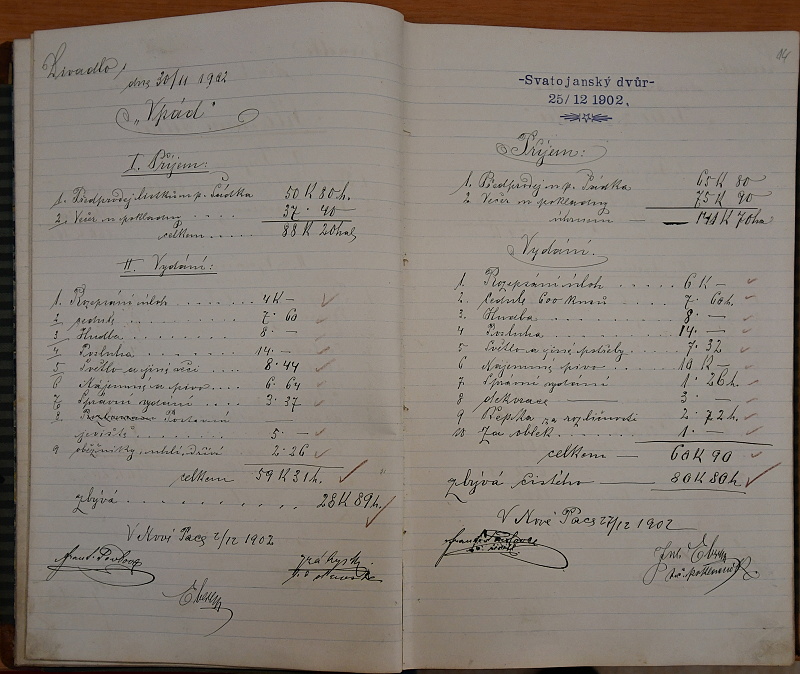 Divadlo,
dne 30/11 1902
"Vpád"
I. Příjem:
1. Předprodej lístků u p. Šádka 50 K 80 h.
2. Večer u pokladny .... 37. 40
celkem ..... 88 K 20 hal,
II. Vydání:
1. Rozepsání úloh ...... 4 K —
2 cedule ......... 7. 60
3 Hudba ......... 8. —
4 Posluha ........ 14. —
5 Světlo a jiné věci .... 8. 44
6 Nájemné a pivo... 6. 64
7 Správní vydání .... 3. 37
8 Postavení
jeviště ........ 5. —
9 oběžníky, uhlí, dříví 2. 26
celkem 59 K 31 h.
zbývá ........... 28 K 89 h.
V Nové Pace 2/12 1902
Eberl
14
-Svatojanský dvůr-
25/12 1902,
Příjem:
1. Předprodej u p. Šádka 65 K 80
2. Večer u pokladny 75 K 90
úhrnem — 141 K 70 ha
Vydání.
1. Rozepsání úloh ...... 6 K —
2. cedule 600 kusů ..... 7. 60 h.
3. Hudba ......... 8. —
4 Posluha ........ 14. —
5 Světlo a jiné potřeby ... 7. 32
6 Nájemné, pivo ..... 10 K —
7. Správní vydání ..... 1. 26 h.
8 dekorace — 3. —
9 Pepka za rozličnosti 2. 72 h.
10 Za oblek ........ 1. —
celkem — 60 K 90
zbývá čistého — 80 K 80 h.
V Nové Pace 27/12 1902